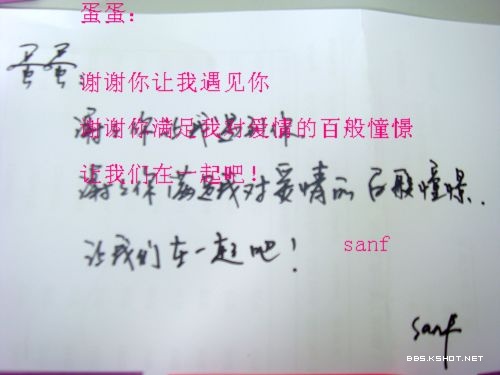 蛋蛋：
蛋蛋：
谢谢你让我遇见你
谢谢你让我遇见你
谢谢你满足我对爱情的百般憧憬
让我们在一起吧！
谢谢你满足我对爱情的百般憧憬.
让我们在一起吧！
sanf
sanf
BBS.KSHOT.NET